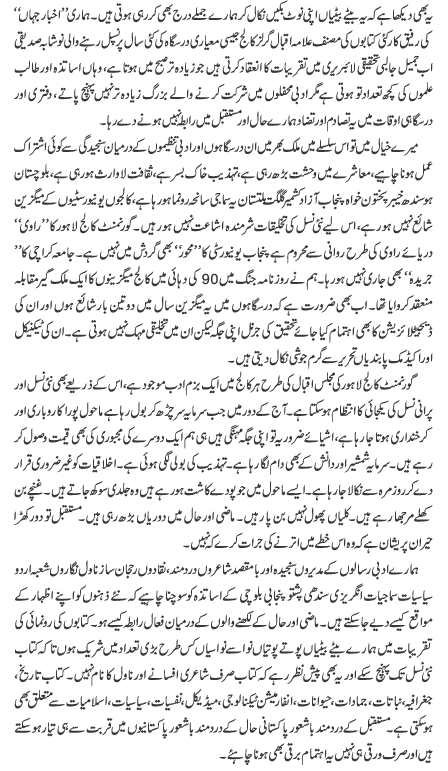 یہ بھی دیکھا ہے کہ یہ بیٹے بیٹیاں اپنی نوٹ بکیں نکال کر ہمارے جملے درج بھی کر رہی ہوتی ہیں۔ ہماری ”اخبار جہاں“
کی رفیق کار کئی کتابوں کی مصنف علامہ اقبال گرلز کالج جیسی معیاری درسگاہ کی کئی سال پرنسپل رہنے والی نوشابہ صدیقی
اب جمیل جالبی تحقیقی لائبریری میں تقریبات کا انعقاد کرتی ہیں جو زیادہ تر صبح میں ہوتا ہے، وہاں اساتذہ اور طالب
علموں کی کچھ تعداد تو ہوتی ہے مگر ادبی محفلوں میں شرکت کرنے والے بزرگ زیادہ تر نہیں پہنچ پاتے، دفتری اور
درسگاہی اوقات میں یہ تصادم اور تضاد ہمارے حال اور مستقبل میں رابطہ نہیں ہونے دے رہا۔
میرے خیال میں تو اس سلسلے میں ملک بھر میں ان درسگاہوں اور ادبی تنظیموں کے درمیان سنجیدگی سے کوئی اشتراک
عمل ہونا چاہیے، معاشرے میں وحشت بڑھ رہی ہے، تہذیب خاک بسر ہے، ثقافت لاوارث ہو رہی ہے، بلوچستان
ہو سندھ خیبر پختون خواہ پنجاب آزاد کشمیر گلگت بلتستان یہ سماجی سانحہ رونما ہو رہا ہے، کالجوں یونیورسٹیوں کے میگزین
شائع نہیں ہو رہے، اس لیے نئی نسل کی تخلیقات شرمندہ اشاعت نہیں ہو رہیں۔ گورنمنٹ کالج لاہور کا ”راوی“
دریائے راوی کی طرح روانی سے محروم ہے پنجاب یونیورسٹی کا ”محور“ بھی گردش میں نہیں ہے۔ جامعہ کراچی کا ”
جریدہ“ بھی جاری نہیں ہو رہا۔ ہم نے روزنامہ جنگ میں 90 کی دہائی میں کالج میگزینوں کا ایک ملک گیر مقابلہ
منعقد کروایا تھا۔ اب بھی ضرورت ہے کہ درسگاہوں میں یہ میگزین سال میں دو تین بار شائع ہوں اور ان کی
ڈیجیٹلائزیشن کا بھی اہتمام کیا جائے تحقیق کی جرنل اپنی جگہ لیکن ان میں تخلیقی مہک نہیں ہوتی ہے۔ ان کی ٹیکنیکل
اور اکیڈمک پابندیاں تحریر سے گرم جوشی نکال دیتی ہیں۔
گورنمنٹ کالج لاہور کی مجلس اقبال کی طرح ہر کالج میں ایک بزم ادب موجود ہے، اس کے ذریعے بھی نئی نسل اور
پرانی نسل کی یکجائی کا انتظام ہو سکتا ہے۔ آج کے دور میں جب سرمایہ سر چڑھ کر بول رہا ہے ماحول پورا کاروباری اور
کرخنداری ہوتا جا رہا ہے، اشیائے ضرور یہ تو اپنی جگہ مہنگی ہیں ہی ہم ایک دوسرے کی مجبوری کی بھی قیمت وصول کر
رہے ہیں۔ سرمایہ شمشیر اور دانش کے بھی دام لگا رہا ہے۔ تہذیب کی بولی لگی ہوئی ہے۔ اخلاقیات کو غیر ضروری قرار
دے کر روزمرہ سے نکالا جا رہا ہے۔ ایسے ماحول میں جو پودے کاشت ہو رہے ہیں وہ جلدی سوکھ جاتے ہیں۔ غنچے بن
کھلے مرجھا رہے ہیں۔ کلیاں پھول نہیں بن پا رہیں۔ ماضی اور حال میں دوریاں بڑھ رہی ہیں۔ مستقبل تو دور کھڑا
حیران پریشان ہے کہ وہ اس خطے میں اترنے کی جرات کرے کہ نہیں۔
ہمارے ادبی رسالوں کے مدیروں سنجیدہ اور بامقصد شاعروں دردمند، نقادوں رجحان ساز ناول نگاروں شعبہ اردو
سیاسیات سماجیات انگریزی سندھی پشتو پنجابی بلوچی کے اساتذہ کو سوچنا چاہیے کہ نئے ذہنوں کو اپنے اظہار کے
مواقع کیسے دیے جا سکتے ہیں۔ ماضی اور حال کے لکھنے والوں کے درمیان فعال رابطہ کیسے ہو۔ کتابوں کی رونمائی کی
تقریبات میں ہمارے بیٹے بیٹیاں پوتے پوتیاں نواسے نواسیاں کس طرح بڑی تعداد میں شریک ہوں تا کہ کتاب
نئی نسل تک پہنچ سکے اور یہ بھی پیش نظر رہے کہ کتاب صرف شاعری افسانے اور ناول کا نام نہیں۔ کتاب تاریخ،
جغرافیہ، نباتات، جمادات، حیوانات، انفارمیشن ٹیکنالوجی، میڈیکل، نفسیات، سیاسیات، اسلامیات سے متعلق بھی
ہو سکتی ہے۔ مستقبل کے دردمند باشعور پاکستانی حال کے دردمند باشعور پاکستانیوں میں قربت سے ہی تیار ہو سکتے
ہیں اور صرف ورقی ہی نہیں یہ اہتمام برقی بھی ہونا چاہئے۔